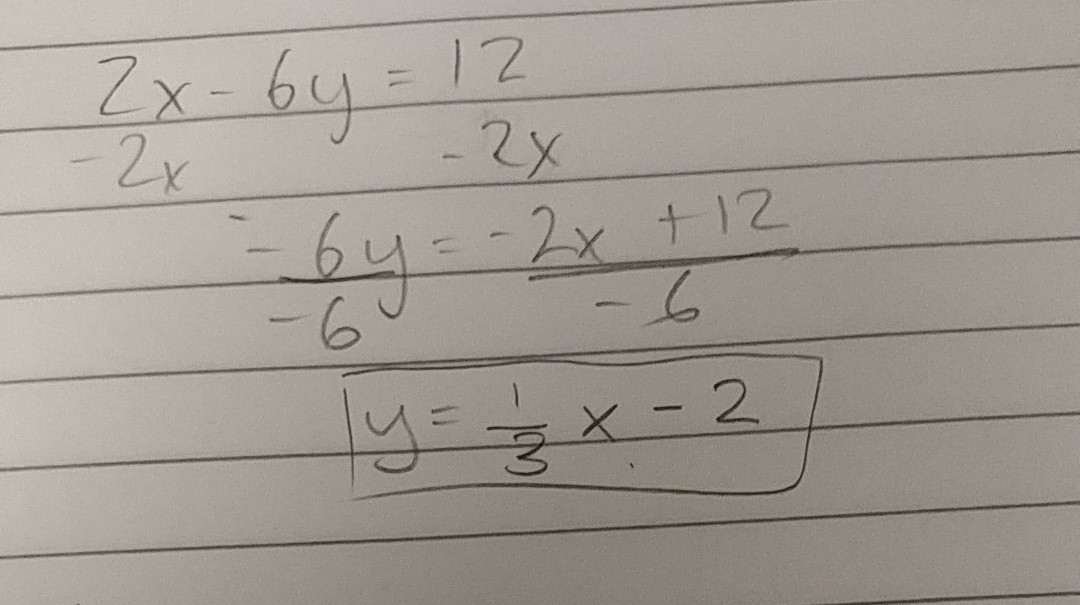 2x - 6y = 12
-2x - 2x
- 6y = -2x + 12
-6 - 6
y = 1/3 x - 2